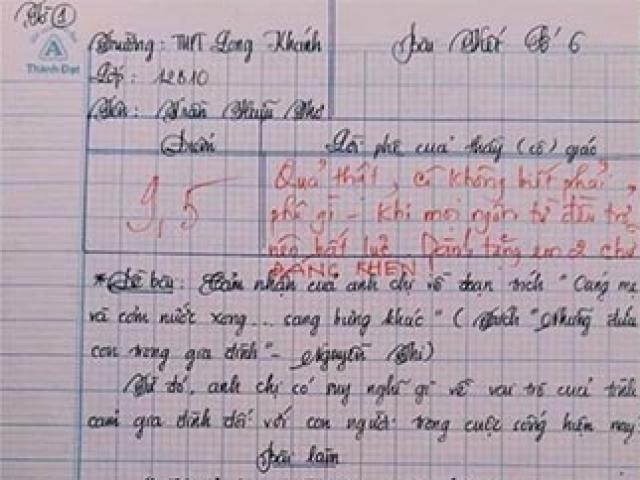 Tờ 1
Thành Đạt
Trường: THPT Long Khánh
Bài Viết Số 6
Lớp: 12B10
Tên: Trần Huỳnh Như
Điểm
Lời phê của thầy (cô) giáo
9,5
Quả thật, cô không biết phải
phê gì - khi mọi ngôn từ đều trở
nên bất lực. Dành tặng em 2 chữ
ĐÁNG KHEN!
*Đề bài: Cảm nhận của anh chị về đoạn trích "Cúng mẹ
và cơm nước xong... sang hừng khác" (Trích "Những đứa
con trong gia đình" - Nguyễn Thi)
Từ đó, anh chị có suy nghĩ gì về vai trò của tình
cảm gia đình đối với con người trong cuộc sống hiện nay
Bài làm